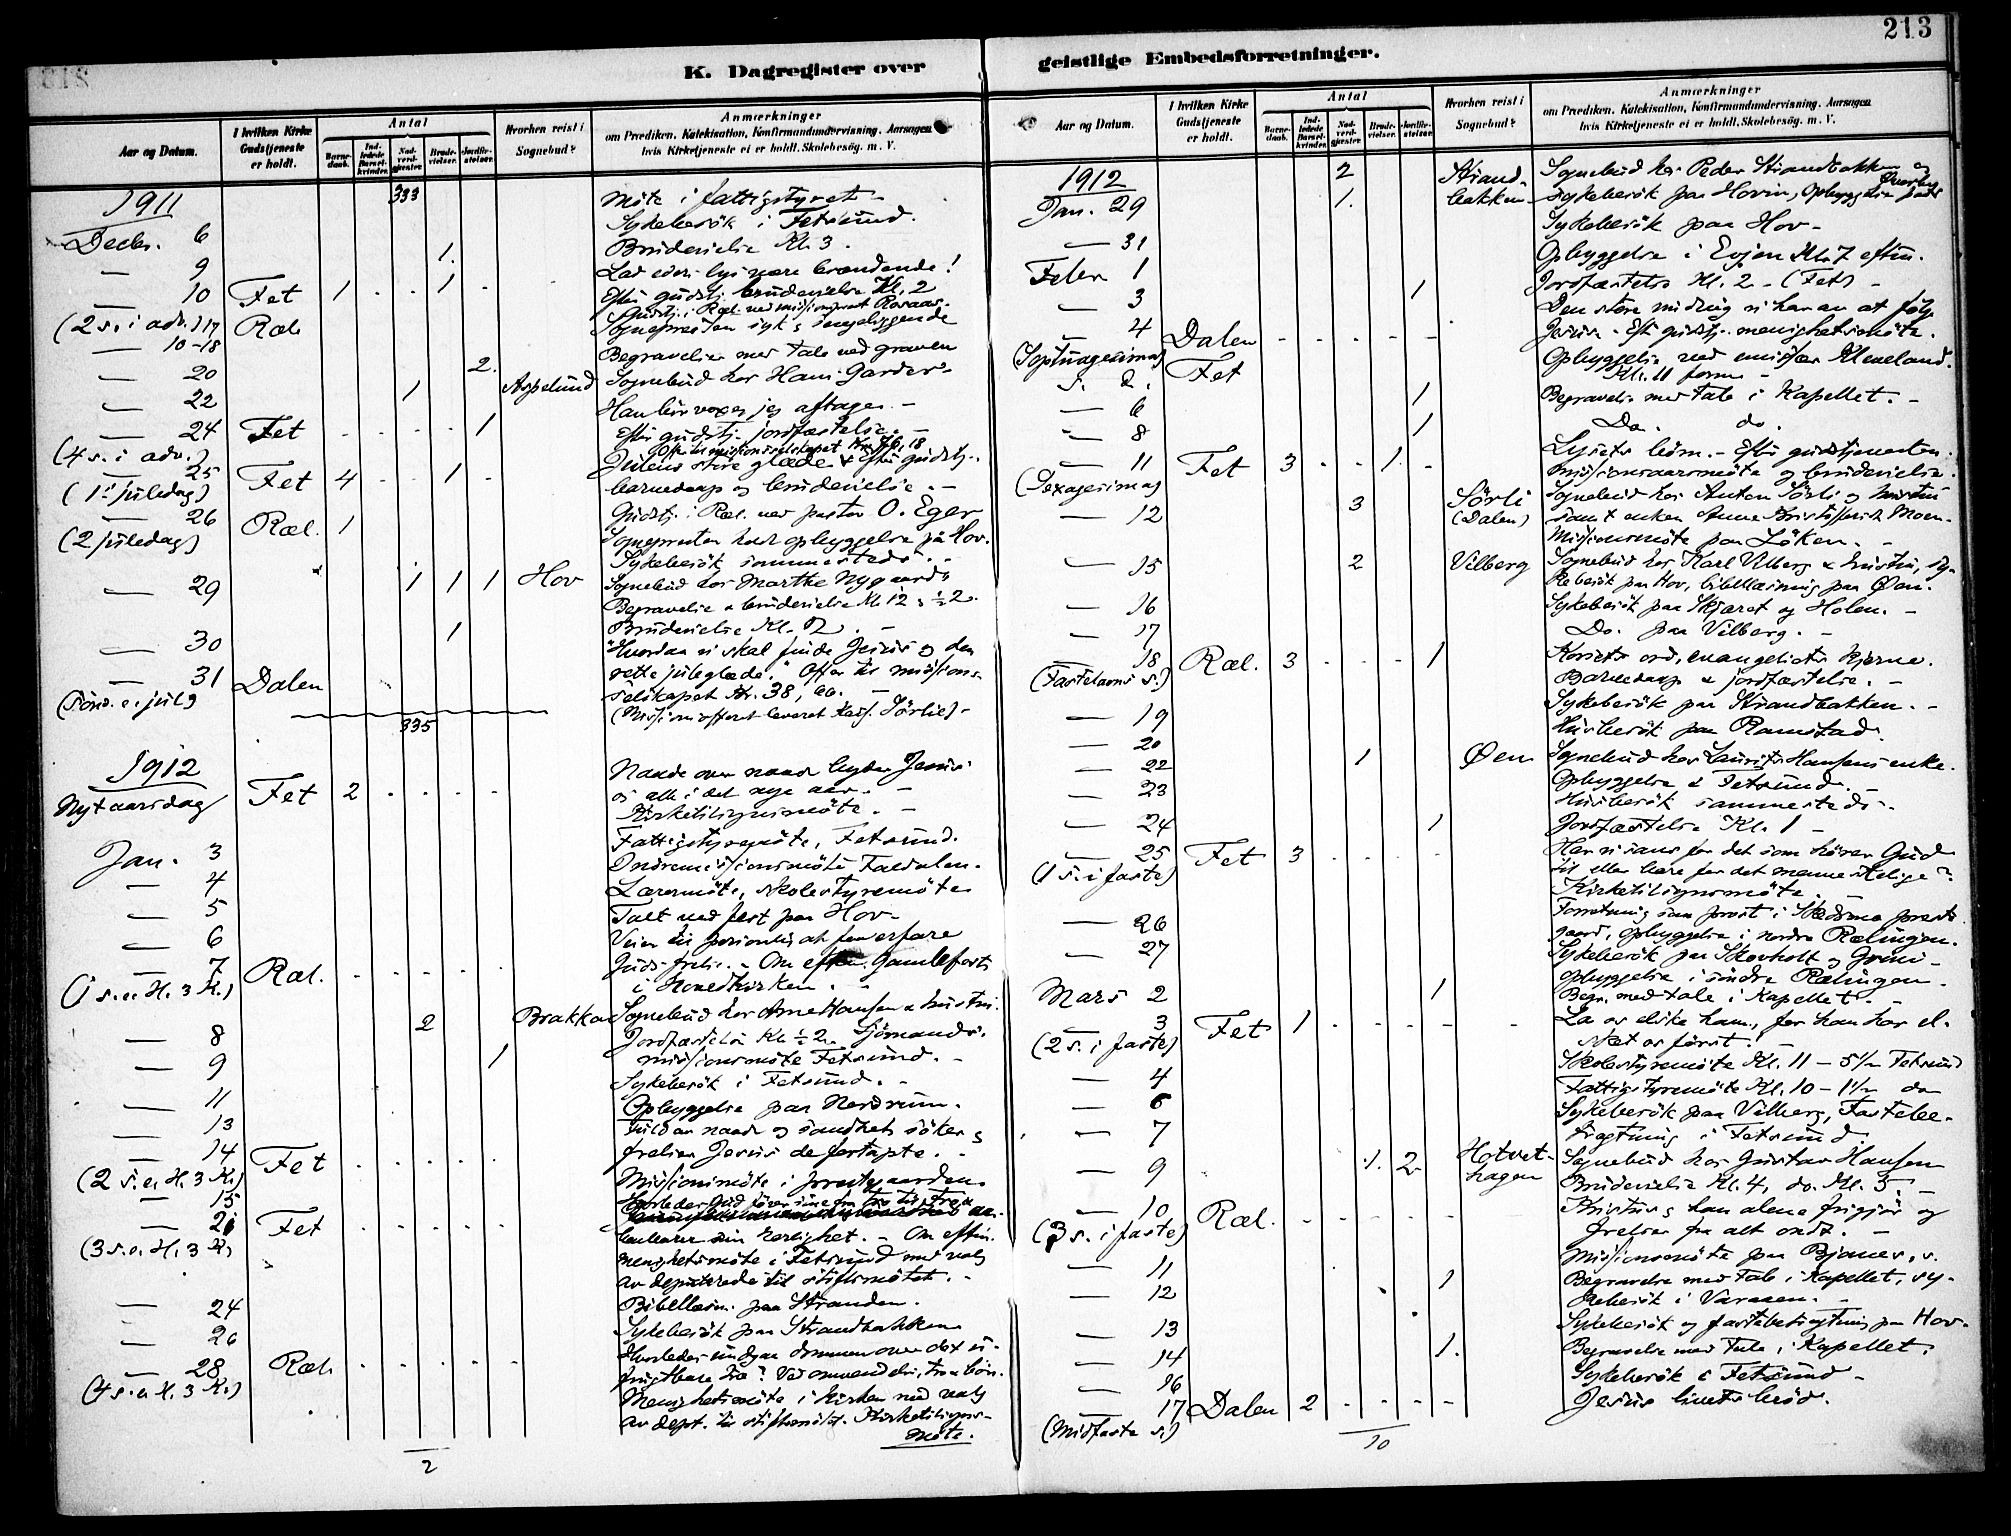 213
K. Dagregister over
geistlige Embedsforretninger.
Aar og Datum.
I hvilken Kirke Gudstjeneste er holdt.
Antal
Barnedaab.
Indledede Barselkvinder.
Nadverdgjester
Brudevielser.
Jordfæstelser.
Hvorhen reist i Sognebud?
Anmærkninger
om Prædiken. Katekisation, Konfirmandundervisning. Aarsagen
hvis Kirketjeneste ei er holdt. Skolebesøg. m. V.
1911 333 Möte i fattigstyret -
Decbr. 6 Sykebesök i Fetsund.
— 9 1. Brudevielse Kl. 3.
— 10 Fet 1 . . 1 . Lad eders lys være brændende!
(2 s. i adv.) Efter gudstj. brudevielse Kl. 2
17 Ræl. Gudstj. i Ræl. ved missionsprest
— 10-18 Sognepresten syk & sengeliggende
— 20 2. Begravelser med tale ved graven
— 22 1 Aspelund Sognebud hos Hans Garder
— 24 Fet . . . . 1 Han bör voxe, jeg aftage. -
(4 s. i adv.) Efter gudstj. jordfæstelse. -
— 25 Fet 4 . . 1 . Julens store glæde & efter gudstj.
(1ste juledag) barnedaap og brudevielse. -
— 26 Ræl. 1 Gudstj. i Ræl. ved pastor O. Eger
(2 juledag) Sognepresten holdt opbyggelse på Hov.
Sykebesök sammesteds. -
— 29 1 1 1 Hov Sognebud hos Marthe Nygaard
Begravelse & brudevielse Kl. 12 & ½2.
— 30 1 Brudevielse Kl. 2. -
— 31 Dalen "Hvordan vi skal finde Jesus og den
(Sönd. e. jul) rette juleglæde." Offer til missions-
selskapet Kr. 38,00. -
335 (Missionsofferet leveret Kass. Sörlie) -
1912 Naade over naade byder Jesus
Nytaarsdag Fet 2 . . . . os alle i det nye aar. -
Kirketilsynsmöte. -
Jan. 3 Fattigstyremöte, Fetsund.
— 4 Indremissionsmöte Faldalen.
— 5 Lærermöte, skolestyremöte
— 6 Talt ved fest paa Hov.
— 7 Ræl. . . . . . Veien til personlig at faa erfare
(1 s. e. H. 3 K.) Guds frelse. - Om eftm. Gamlefest
i Hovedkirken. -
— 8 2 Brakka Sognebud hos Arne Hansen & hustru.
— 9 1 Jordfæstelse Kl. ½2. Sjömands-
missionsmöte Fetsund. -
— 11 Sykebesök i Fetsund. -
— 13 Opbyggelse paa Nerdrum.
— 14 Fet . . . . . Fuld av naade og sandhet söker &
(2 s. e. H. 3 K.) frelser Jesus de fortapte. -
— 15 Missionsmöte i prestegaarden.
— 21 Fet . . . . . Hvorledes Gud förer sine fra tro til tro &
(3 s. e. H. 3 K.) aabenbarer sin herlighet. - Om eftm.
menighetsmöte i Fetsund med valg
av deputerede til stiftsmötet. -
— 24 Bibellæsn. paa Stranden.
— 26 Sykebesök paa Strandbakken
— 28 Ræl. . . . . . Hvorledes undgaa dommen over det u-
(4 s. e. H. 3 K.) frugtbare træ? Ved omvendelse, tro & bön.
Menighetsmöte i kirken med valg
av deput. til stiftsmötet. Kirketilsyns-
möte.
2
Aar og Datum.
I hvilken Kirke Gudstjeneste er holdt.
Antal
Barnedaab.
Indledede Barselkvinder.
Nadverdgjester
Brudevielser.
Jordfæstelser.
Hvorhen reist i Sognebud?
Anmærkninger
om Prædiken. Katekisation, Konfirmandundervisning. Aarsagen
hvis Kirketjeneste ei er holdt. Skolebesøg. m. V.
1912 2 Strand- Sognebud hos Peder Strandbakken og
Jan. 29 1. bakken sykebesök paa Hovin, Opbyggelse
— 31 Sykebesök paa Hov -
Febr 1 Opbyggelse i Evjen Kl. 7 eftm.
— 3 1 Jordfæstelse Kl. 2 - (Fet) -
— 4 Dalen . . . . . Den store vinding vi har av at fölge
(Septuagesima) Jesus - Efter gudstj. menighetsmöte.
s. d. Fet Opbyggelse ved emissær Kleveland.
Kl. 11 form -
— 6 1 Begravelse med tale i Kapellet. -
— 8 1 Do. do.
— 11 Fet 3 . . 1. . Lysets börn. - Efter gudstjenesten
(Sexagesima) missionsaarsmöte og brudevielse.
— 12 3 Sörli Sognebud hos Anton Sörli og hustru
(Dalen) samt enken Anne Kristoffersd. Moen.
Missionsmöte paa Löken. -
— 15 2 Vilberg Sognebud hos Karl Vilberg & hustru, sy-
kebesök paa Hov, bibellæsning paa Øen.
— 16 Sykebesök paa Skjæret og Holen. -
— 17 Do. paa Vilberg. -
— 18 Ræl. 3 . . . 1 Korsets ord, evangeliets kjerne.
(Fastelavns s.) Barnedaap & jordfæstelse. -
— 19 Sykebesök paa Strandbakken. -
— 20 Husbesök paa Ramstad.
— 22 1 Øen Sognebud hos Laurits Hansens enke.
— 23 Opbyggelse i Fetsund. -
Husbesök sammesteds. -
— 24 1 Jordfæstelse Kl. 1 -
— 25 Fet 3 . . . . Har vi sans for det som hörer Gud
(1 s. i faste) til eller bare for det menneskelige?
Kirketilsynsmöte.
— 26 Forretning som provst i Skedsmo preste-
gaard, Opbyggelse i nordre Rælingen.
— 27 Sykebesök paa Skovholt og Grini -
Opbyggelse i söndre Rælingen -
Mars 2 1 Begr. med tale i Kapellet. -
— 3 Fet 1 . . . . - La os elske ham, for han har el-
(2 s. i faste) sket os först! -
— 4 Skolestyremöte Kl. 11 - 5½ Fetsund
— 6 Fattigstyremöte Kl. 10 - 1½ do
— 7 Sykebesök paa Vilberg, Fastebe-
tragtning i Fetsund
— 9 1. 2 Hotvet- Sognebud hos Gustav Hansen
hagen Brudevielse Kl. 4, do. Kl. 5. -
— 10 Ræl. . . . . . Kristus & han alene frigjör og
(3 s. i faste) frelser fra alt ondt. -
— 11 Missionsmöte paa Bjanes, s.
— 12 1 Begravelse med tale i Kapellet, sy-
kebesök i Varaaen. -
— 13 Sykebesök og fastebetragtning paa Hov.
— 14 1. Begravelse med tale i Kapellet.
— 16 Sykebesök i Fetsund -
— 17 Dalen 2 . . . . Jesus livets bröd.
(Midfaste s.)
10